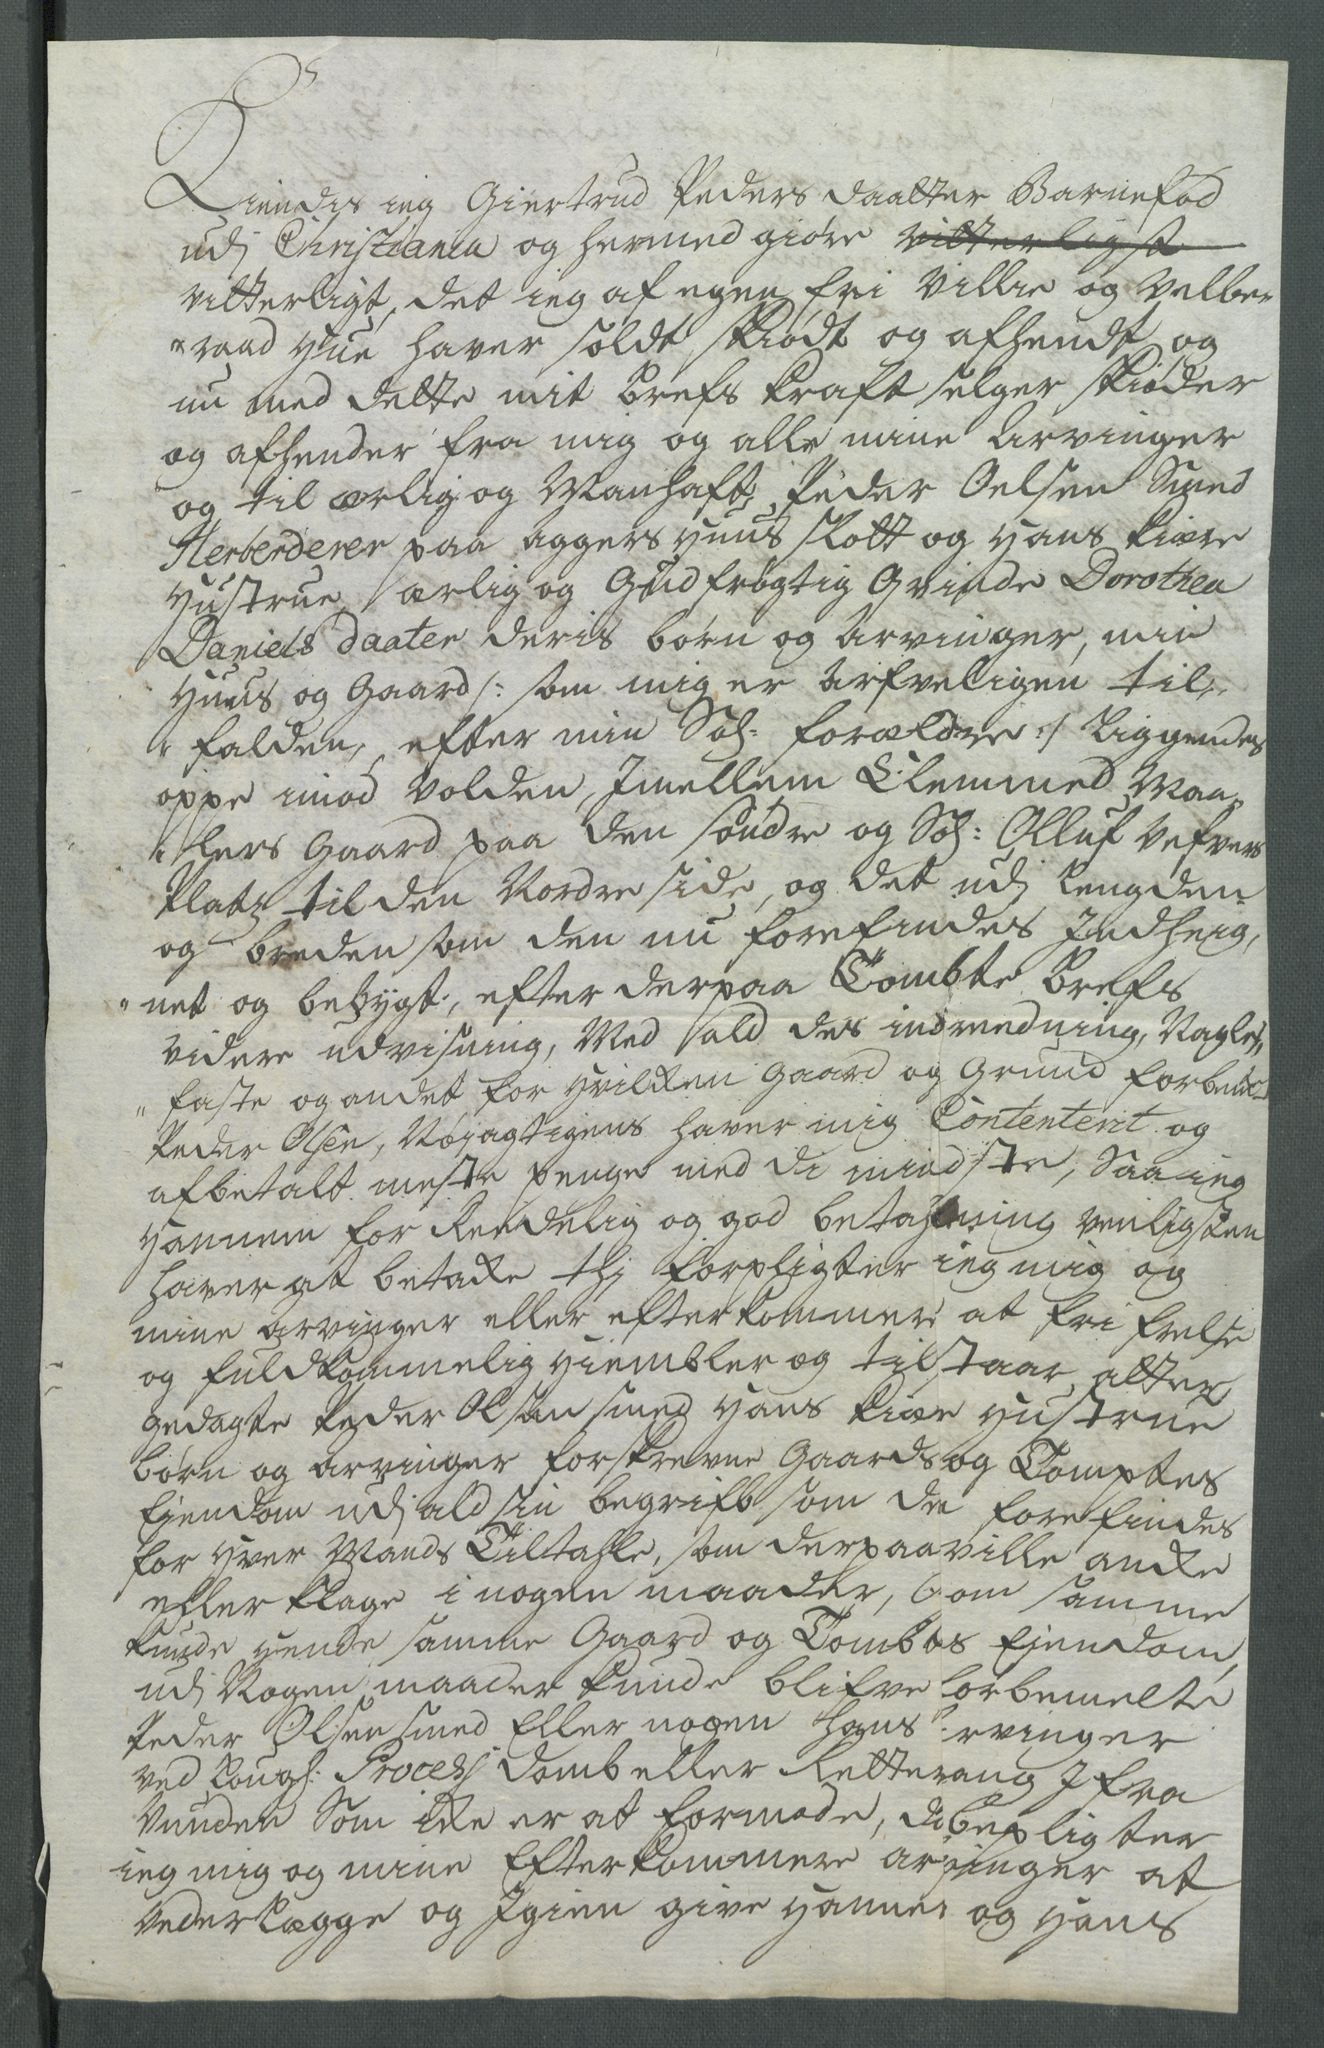 Kiendis ieg Giertrud Peders daatter Barnefød
udj Christiania og hermed giøre vitterligst
vitterligt, det ieg af egen fri Villie og velbe„
„raad Hue haver soldt, skiødt og afhendt, og
nu med dette mit brefs kraft selger skiøder
og afhender fra mig og alle mine Arvinger
og til ærlig og Manhaft, Peder Oelsen Smed
Herberderer paa Aggers Huus Slott og Hans kiære
Hustrue, ærlig og Gudfrögtig Qvinde Dorothea
Daniels daater deris børn og Arvinger, min
Huus og Gaard /: som mig er Arfveligen til„
„falden, efter min Sal: forældre :/ liggendes
oppe imod Volden, Jmellem Clemmed Maa„
„lers Gaard paa den søndre og Sal: Olluf Vefvers
Platz til den Nordre side, og det udj lengden
og breden som den nu forefindes Jndheig„
„net og bebygt, efter derpaa Tombte brefs
videre udvisning, Med ald des indredning, Nagle„
„faste og andet for hvilken Gaard og Grund forbemte
Peder Olsen, Nöjagtigens haver mig Contenterit og
afbetalt meste penge med di mindste, Saa ieg
Hannem for Reedelig og god betahlning venligsten
haver at betakke thj forpligter ieg mig og
mine Arvinger eller efterkommere at fri frelse
og fuldkommelig Hiembler og tilstaar, atter
gedagte Peder Olsøn smed Hans kiære Hustrue
børn og Arvinger forskrevne Gaards og Tomptes
Ejendom udj ald sin begrifb som de forefindes
for Hver Mands Tiltahle, som derpaa ville anke
eller klage i nogen maader, Om samme
kunde hende samme Gaard og Tombtes Ejendom,
udj Nogen maader kunde blifve forbemelte
Peder Olsen smed Eller nogen Hans Arvinger
ved Laugl: Process Domb eller Rettergang Jfra
Vunden Som ikke er at formode, da bepligter
ieg mig og mine Efterkommere Arvinger at
Vederlægge og Jgien give Hannem og Hans